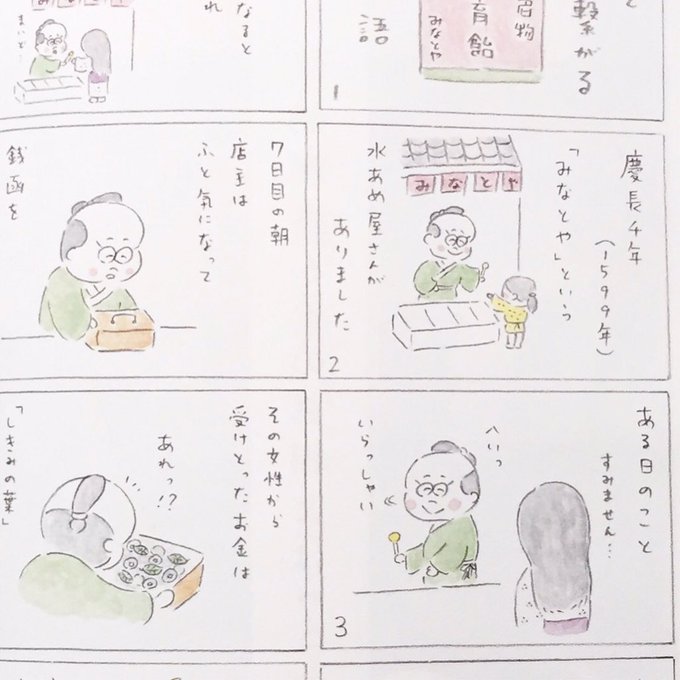 と
繋がる
名物
育飴
みなとや
語
1
慶長4年
(1599年)
「みなとや」という
みなとや
水あめ屋さんが
ありました
2
ある日のこと
すみません…
へいっ
いらっしゃい
3
なると
れ
まいど…
7日目の朝
店主は
ふと気になって
銭函を
その女性から
受けとったお金は
あれっ!?
「しきみの葉」